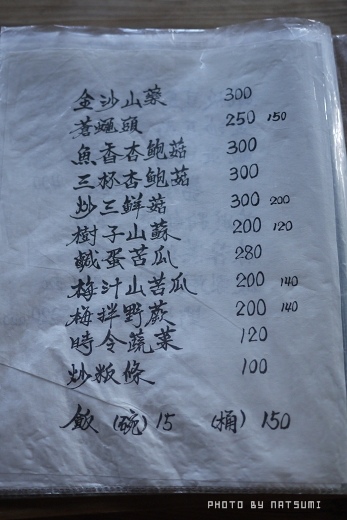 金沙山藥 300
蒼蠅頭 250 150
魚香杏鮑菇 300
三杯杏鮑菇 300
炒三鮮菇 300 200
樹子山蘇 200 120
鹹蛋苦瓜 280
梅汁山苦瓜 200 140
梅拌野蕨 200 140
時令蔬菜 120
炒粄條 100
飯 (碗) 15 (桶) 150
PHOTO BY NATSUMI